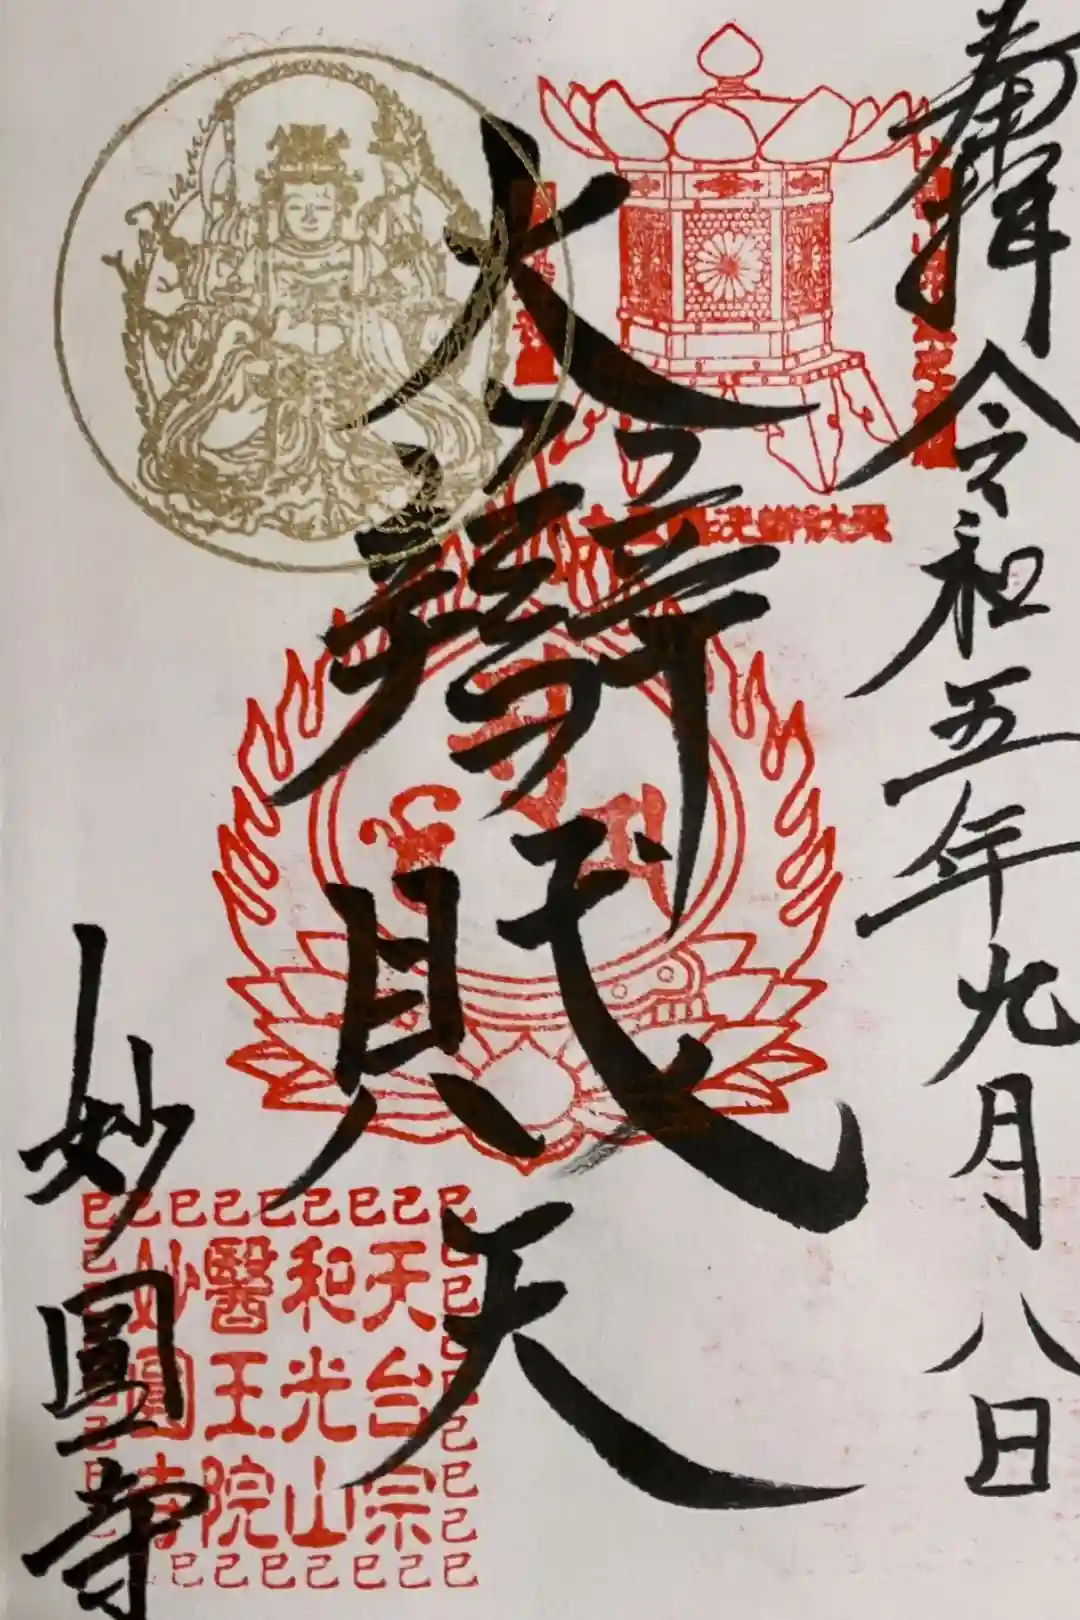 奉拝 令和五年九月八日
大辯財天
妙圓寺
天台宗
和光山
醫王院
妙圓寺